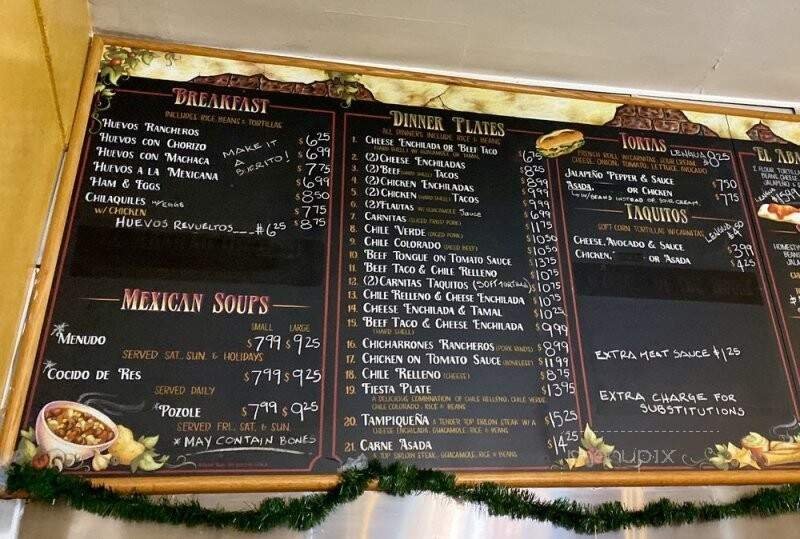 Breakfast
Includes Rice, Beans & Tortillas
Huevos Rancheros $6.25
Huevos con Chorizo $6.99
Huevos con Machaca $7.75
Huevos a la Mexicana $6.99
Ham & Eggs $8.50
Chilaquiles w/eggs $7.75
w/ Chicken $8.75
Huevos Revueltos---$6.25
Make it a burrito!
Mexican Soups
Small Large
Menudo $7.99 $9.25
Served Sat., Sun. & Holidays
Cocido de Res $7.99 $9.25
Served Daily
Pozole $7.99 $9.25
Served Fri., Sat. & Sun.
*May contain bones
Dinner Plates
All Dinners Include Rice & Beans
1. Cheese Enchilada or Beef Taco
2. (2) Cheese Enchiladas
3. (2) Beef (Hard Shell) Tacos
4. (2) Chicken Enchiladas
5. (2) Chicken (Hard Shell) Tacos
6. (2) Flautas w/ Guacamole Sauce
7. Carnitas (Sliced Fried Pork)
8. Chile Verde (Diced Pork)
9. Chile Colorado (Diced Beef)
10. Beef Tongue on Tomato Sauce
11. Beef Taco & Chile Relleno
12. (2) Carnitas Taquitos (Soft Tortillas)
13. Chile Relleno & Cheese Enchilada
14. Cheese Enchilada & Tamal
15. Beef Taco & Cheese Enchilada
(Hard Shell)
16. Chicharrones Rancheros (Pork Rinds) $8.99
17. Chicken on Tomato Sauce (Boneless) $11.99
18. Chile Relleno (Cheese) $8.75
19. Fiesta Plate $13.95
A Delicious Combination of Chile Relleno, Chile Verde,
Chile Colorado, Rice & Beans
20. Tampiqueña A Tender Top Sirloin Steak w/ a $15.25
Cheese Enchilada, Guacamole, Rice & Beans
21. Carne Asada $14.25
A Top Sirloin Steak, Guacamole, Rice & Beans
Tortas
Lengua 8.25
French Roll w/Carnitas, Sour Cream,
Cheese, Onion, Tomato, Lettuce, Avocado
Jalapeño Pepper & Sauce $7.50
Asada, or Chicken $7.75
w/Beans instead of sour cream
Taquitos
Soft Corn Tortillas w/Carnitas,
Lengua
Cheese, Avocado & Sauce $3.99
Chicken, or Asada $4.25
Extra meat sauce $1.25
Extra charge for
substitutions
menupix